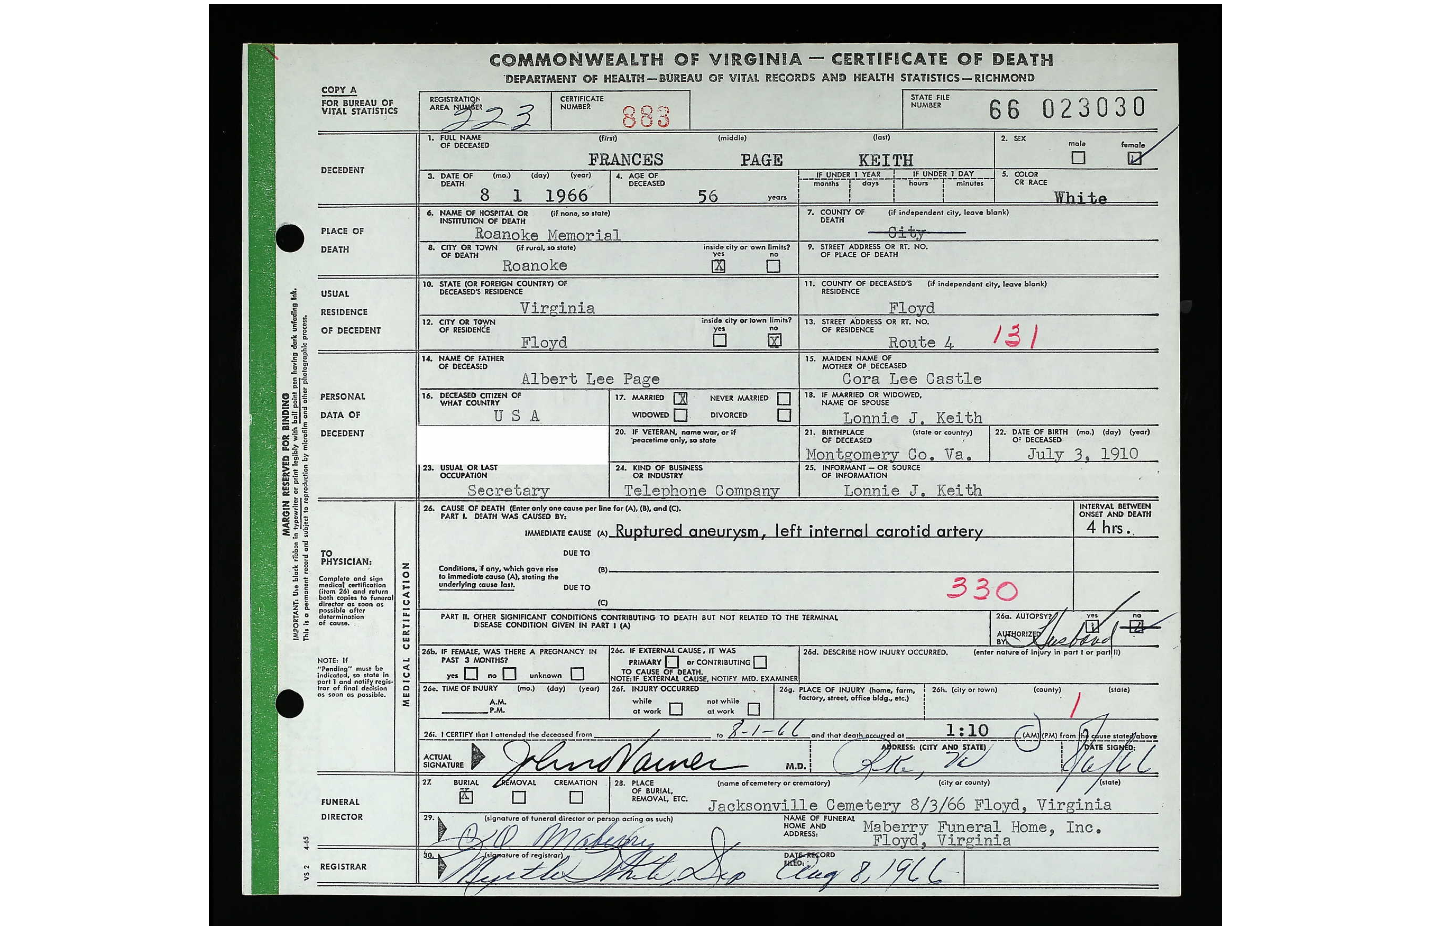 COMMONWEALTH OF VIRGINIA — CERTIFICATE OF DEATH
DEPARTMENT OF HEALTH—BUREAU OF VITAL RECORDS AND HEALTH STATISTICS—RICHMOND
COPY A
FOR BUREAU OF VITAL STATISTICS
REGISTRATION AREA NUMBER 223
CERTIFICATE NUMBER 883
STATE FILE NUMBER 66 023030
DECEDENT
1. FULL NAME OF DECEASED (first) (middle) (last)
FRANCES PAGE KEITH
2. SEX male female
3. DATE OF DEATH (mo.) (day) (year)
8 1 1966
4. AGE OF DECEASED 56 years
IF UNDER 1 YEAR months days
IF UNDER 1 DAY hours minutes
5. COLOR OR RACE White
PLACE OF DEATH
6. NAME OF HOSPITAL OR INSTITUTION OF DEATH (if none, so state)
Roanoke Memorial
7. COUNTY OF DEATH (if independent city, leave blank)
City
8. CITY OR TOWN OF DEATH (if rural, so state) inside city or town limits? yes X no
Roanoke
9. STREET ADDRESS OR RT. NO. OF PLACE OF DEATH
USUAL RESIDENCE OF DECEDENT
10. STATE (OR FOREIGN COUNTRY) OF DECEASED'S RESIDENCE
Virginia
11. COUNTY OF DECEASED'S RESIDENCE (if independent city, leave blank)
Floyd
12. CITY OR TOWN OF RESIDENCE inside city or town limits? yes no X
Floyd
13. STREET ADDRESS OR RT. NO. OF RESIDENCE
Route 4 131
PERSONAL DATA OF DECEDENT
14. NAME OF FATHER OF DECEASED
Albert Lee Page
15. MAIDEN NAME OF MOTHER OF DECEASED
Cora Lee Castle
16. DECEASED CITIZEN OF WHAT COUNTRY
U S A
17. MARRIED X NEVER MARRIED
WIDOWED DIVORCED
18. IF MARRIED OR WIDOWED, NAME OF SPOUSE
Lonnie J. Keith
20. IF VETERAN, name war, or if peacetime only, so state
21. BIRTHPLACE OF DECEASED (state or country)
Montgomery Co. Va.
22. DATE OF BIRTH OF DECEASED (mo.) (day) (year)
July 3, 1910
23. USUAL OR LAST OCCUPATION
Secretary
24. KIND OF BUSINESS OR INDUSTRY
Telephone Company
25. INFORMANT — OR SOURCE OF INFORMATION
Lonnie J. Keith
MARGIN RESERVED FOR BINDING
IMPORTANT: Use black ribbon in typewriter or print legibly with ball point pen having dark unfading ink.
This is a permanent record and subject to reproduction by microfilm and other photographic process.
TO PHYSICIAN:
Complete and sign medical certification (item 26) and return both copies to funeral director as soon as possible after determination of cause.
NOTE: If "Pending" must be indicated, so state in part 1 and notify registrar of final decision as soon as possible.
MEDICAL CERTIFICATION
26. CAUSE OF DEATH (Enter only one cause per line for (A), (B), and (C).
PART I. DEATH WAS CAUSED BY:
INTERVAL BETWEEN ONSET AND DEATH
IMMEDIATE CAUSE (A) Ruptured aneurysm, left internal carotid artery 4 hrs.
DUE TO
Conditions, if any, which gave rise to immediate cause (A), stating the underlying cause last. (B)
DUE TO
(C)
330
PART II. OTHER SIGNIFICANT CONDITIONS CONTRIBUTING TO DEATH BUT NOT RELATED TO THE TERMINAL DISEASE CONDITION GIVEN IN PART I (A)
26a. AUTOPSY? yes no
AUTHORIZED BY Husband
26b. IF FEMALE, WAS THERE A PREGNANCY IN PAST 3 MONTHS?
yes no unknown
26c. IF EXTERNAL CAUSE, IT WAS
PRIMARY or CONTRIBUTING
TO CAUSE OF DEATH.
NOTE: IF EXTERNAL CAUSE, NOTIFY MED. EXAMINER
26d. DESCRIBE HOW INJURY OCCURRED. (enter nature of injury in part I or part II)
26e. TIME OF INJURY (mo.) (day) (year)
A.M.
P.M.
26f. INJURY OCCURRED
while at work not while at work
26g. PLACE OF INJURY (home, farm, factory, street, office bldg., etc.)
26h. (city or town) (county) (state)
26i. I CERTIFY that I attended the deceased from to 8-1-66 and that death occurred at 1:10 (AM) (PM) from cause stated above
ACTUAL SIGNATURE John Varner M.D.
ADDRESS: (CITY AND STATE)
DATE SIGNED: 8/6/66
FUNERAL DIRECTOR
27. BURIAL X REMOVAL CREMATION
28. PLACE OF BURIAL, REMOVAL, ETC. (name of cemetery or crematory) (city or county) (state)
Jacksonville Cemetery 8/3/66 Floyd, Virginia
29. (signature of funeral director or person acting as such)
Maberry
NAME OF FUNERAL HOME AND ADDRESS:
Maberry Funeral Home, Inc.
Floyd, Virginia
REGISTRAR
30. (signature of registrar)
Myrtle
DATE RECORD FILED: Aug 8, 1966
VS 2 4-65